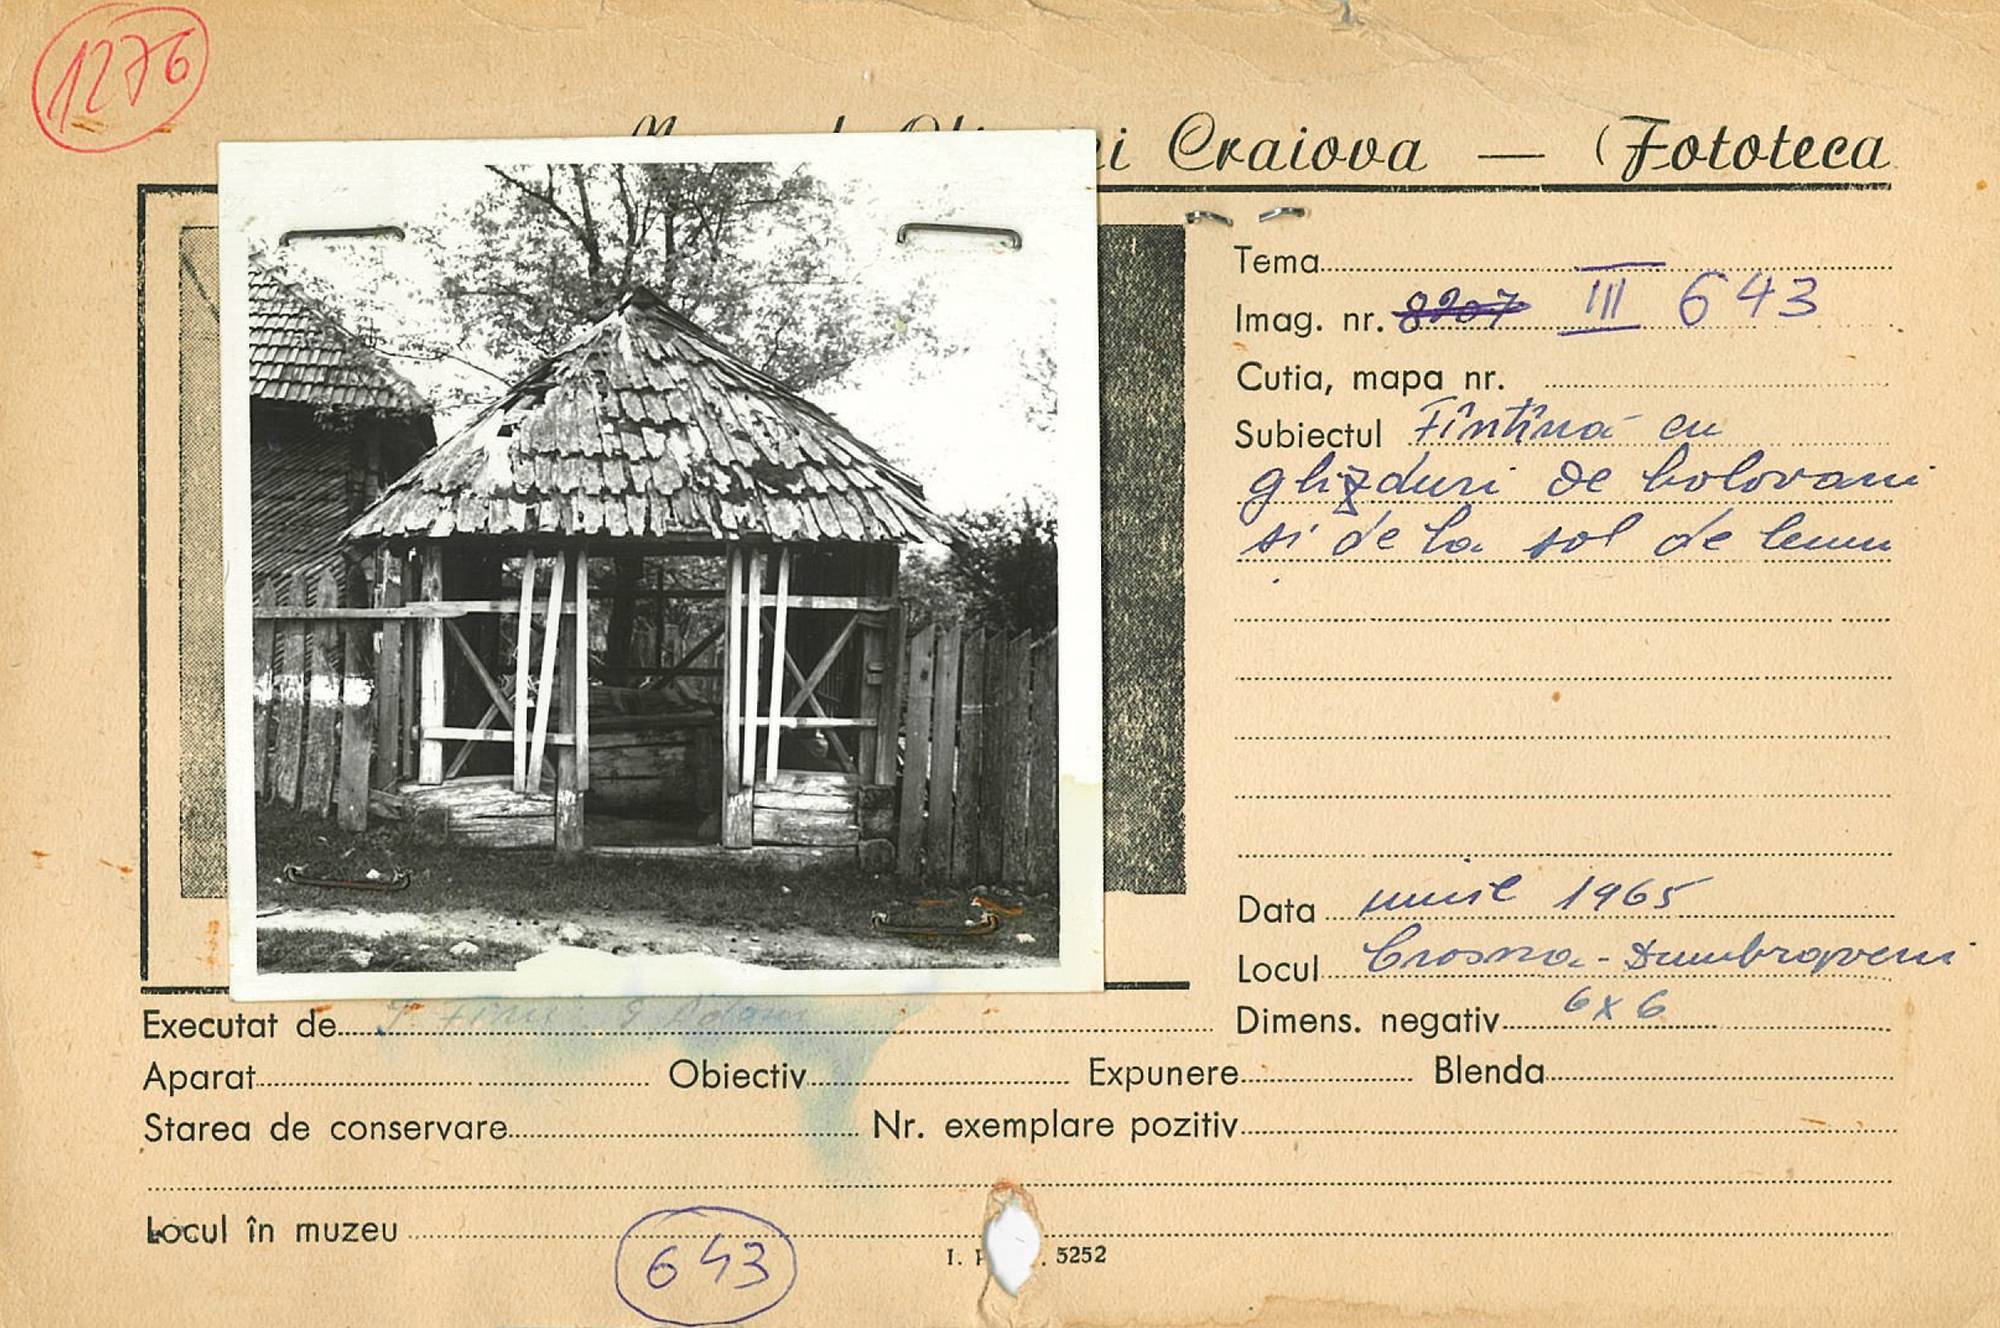 1276
Craiova — Fototeca
Tema
Imag. nr. 8207 III 643
Cutia, mapa nr.
Subiectul Fîntînă cu
ghizduri de bolovani
si de la sol de lemn
Data iunie 1965
Locul Crosna - Dumbraveni
Executat de
Dimens. negativ 6x6
Aparat Obiectiv Expunere Blenda
Starea de conservare Nr. exemplare pozitiv
Locul în muzeu
643
I. 5252